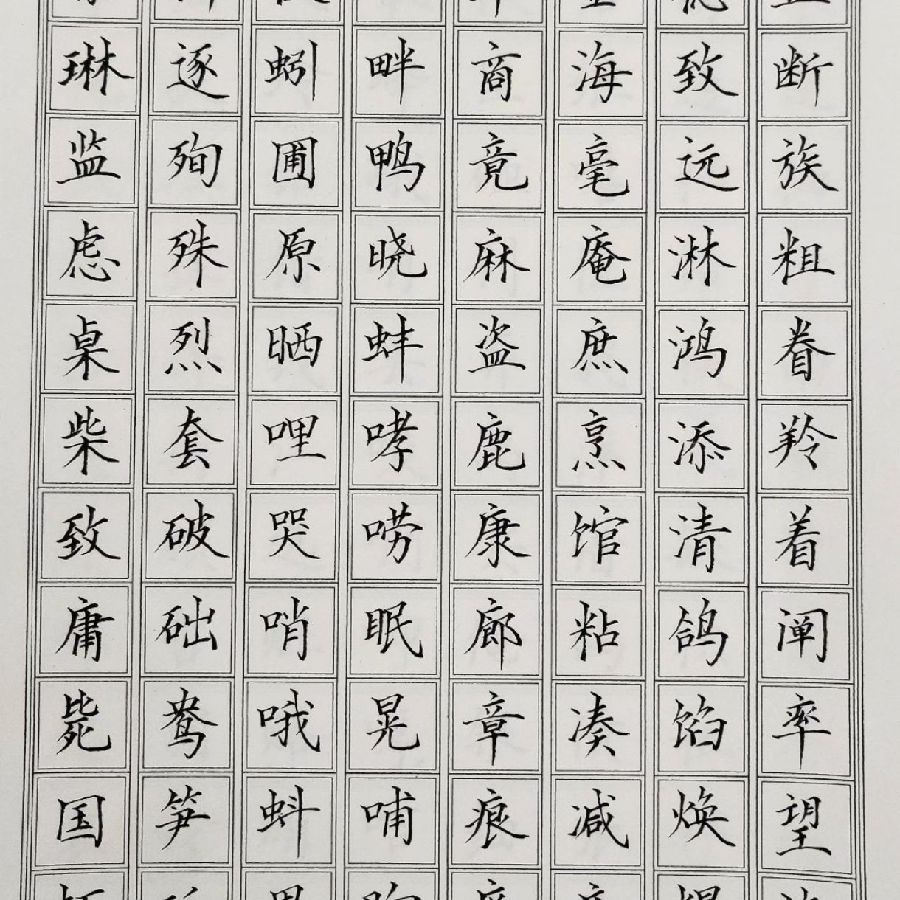 断族粗眷羚着阐率望
致远淋鸿添清鸽馅焕
海毫庵庶烹馆粘凑减
商竟麻盗鹿康廊章痕
畔鸭晓蚌哮唠眠晃哺
蚓圃原晒哩哭哨哦蚪
逐殉殊烈套破础鸯笋
琳监虑桌柴致庸毙国